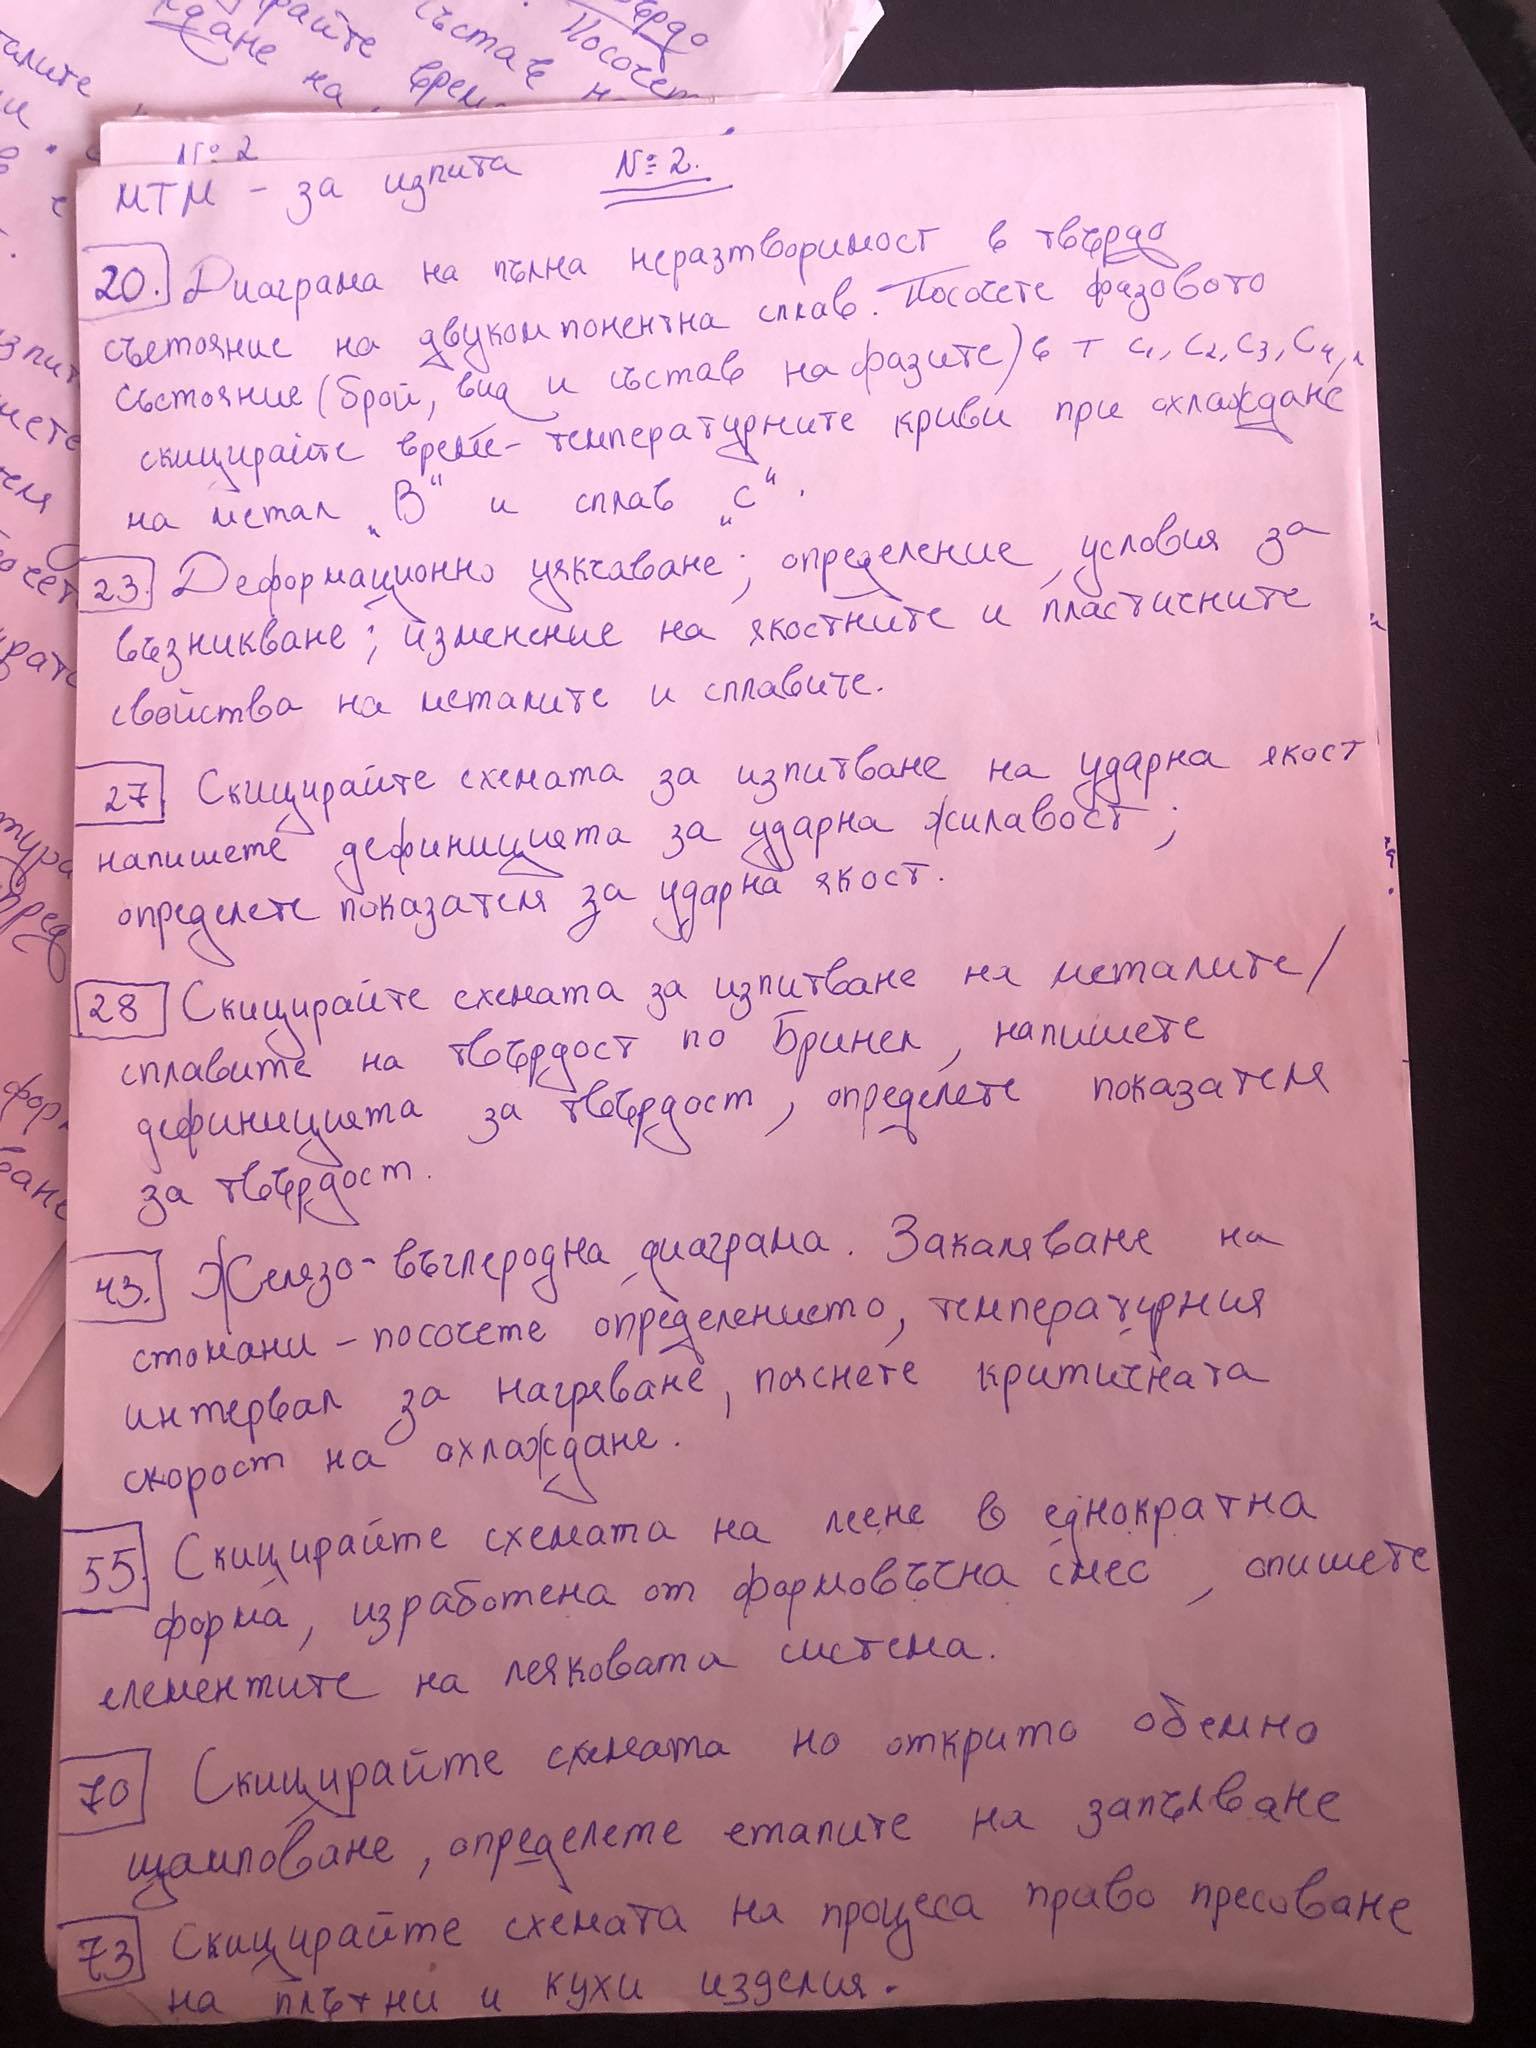 № 2
МТМ - за изпита № 2.
20. Диаграма на пълна неразтворимост в твърдо
състояние на двукомпонентна сплав. Посочете фазовото
състояние (брой, вид и състав на фазите) в т C1, C2, C3, C4, и
скицирайте време-температурните криви при охлаждане
на метал „В“ и сплав „С“.
23. Деформационно уякчаване; определение, условия за
възникване; изменение на якостните и пластичните
свойства на металите и сплавите.
27. Скицирайте схемата за изпитване на ударна якост
напишете дефиницията за ударна жилавост;
определете показателя за ударна якост.
28 Скицирайте схемата за изпитване на металите/
сплавите на твърдост по Бринел, напишете
дефиницията за твърдост, определете показателя
за твърдост.
43. Желязо-въглеродна диаграма. Закаляване на
стомани - посочете определението, температурния
интервал за нагряване, пояснете критичната
скорост на охлаждане.
55. Скицирайте схемата на леене в еднократна
форма, изработена от формовъчна смес, опишете
елементите на леяковата система.
70 Скицирайте схемата но открито обемно
щамповане, определете етапите на запълване
73 Скицирайте схемата на процеса право пресоване
на плътни и кухи изделия.